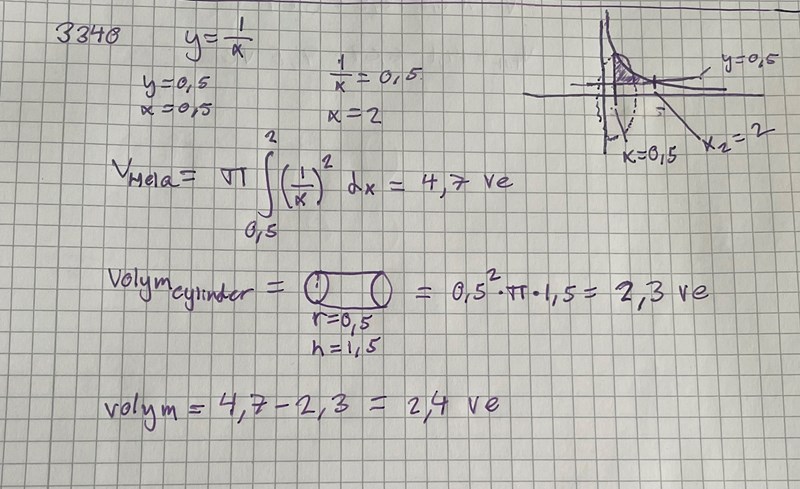 3340 y = 1/x
y = 0,5 1/x = 0,5
x = 0,5 x = 2
y = 0,5
x = 0,5 x₂ = 2
V_Hela = π ∫_{0,5}^{2} (1/x)² dx = 4,7 ve
Volym_cylinder = = 0,5² · π · 1,5 = 2,3 ve
r = 0,5
h = 1,5
volym = 4,7 - 2,3 = 2,4 ve